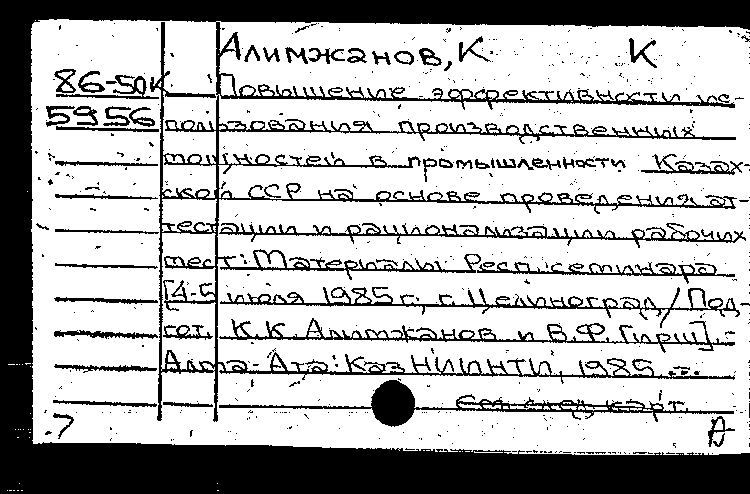 Алимжанов, К. К
86-50К Повышение эффективности ис-
5956 пользования производственных
мощностей в промышленности Казах-
ской ССР на основе проведения ат-
тестации и рационализации рабочих
мест: Материалы Респ. семинара
[4-5 июля 1985 г., г. Целиноград / Под-
гот. К.К. Алимжанов и В.Ф. Гирш]. -
Алма-Ата: КазНИИНТИ, 1985. -
См. след. карт.
7 А